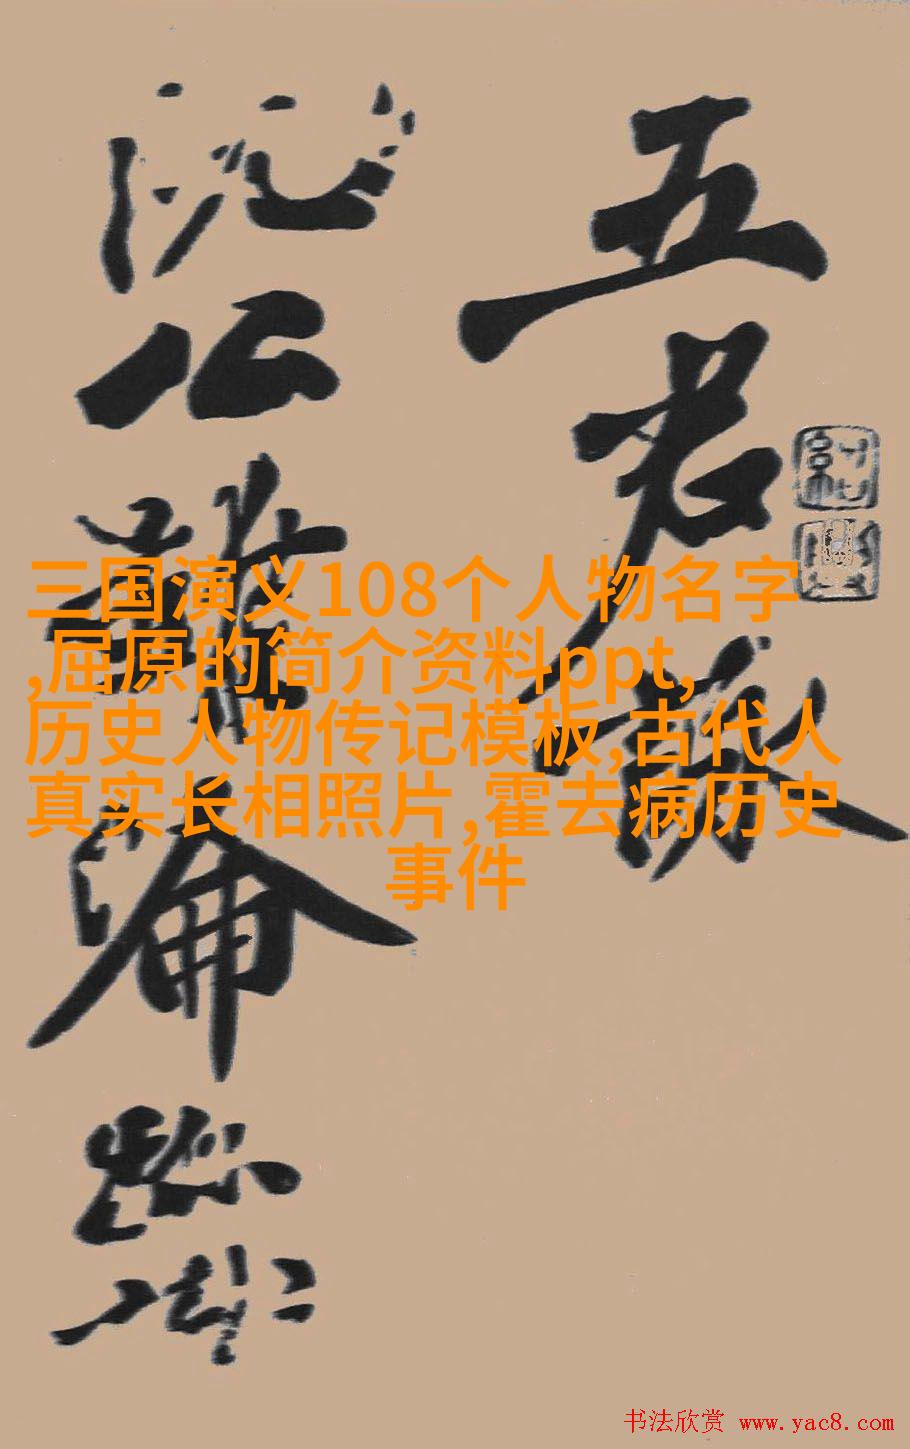 五君詠
阮公雖淪跡
三国演义108个人物名字
,屈原的简介资料ppt,
历史人物传记模板,古代人
真实长相照片,霍去病历史
事件
书法欣赏 www.yac8.com